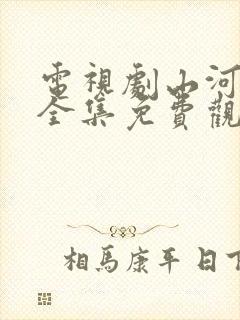 電視劇山河
全集免費觀
相馬康平 日下